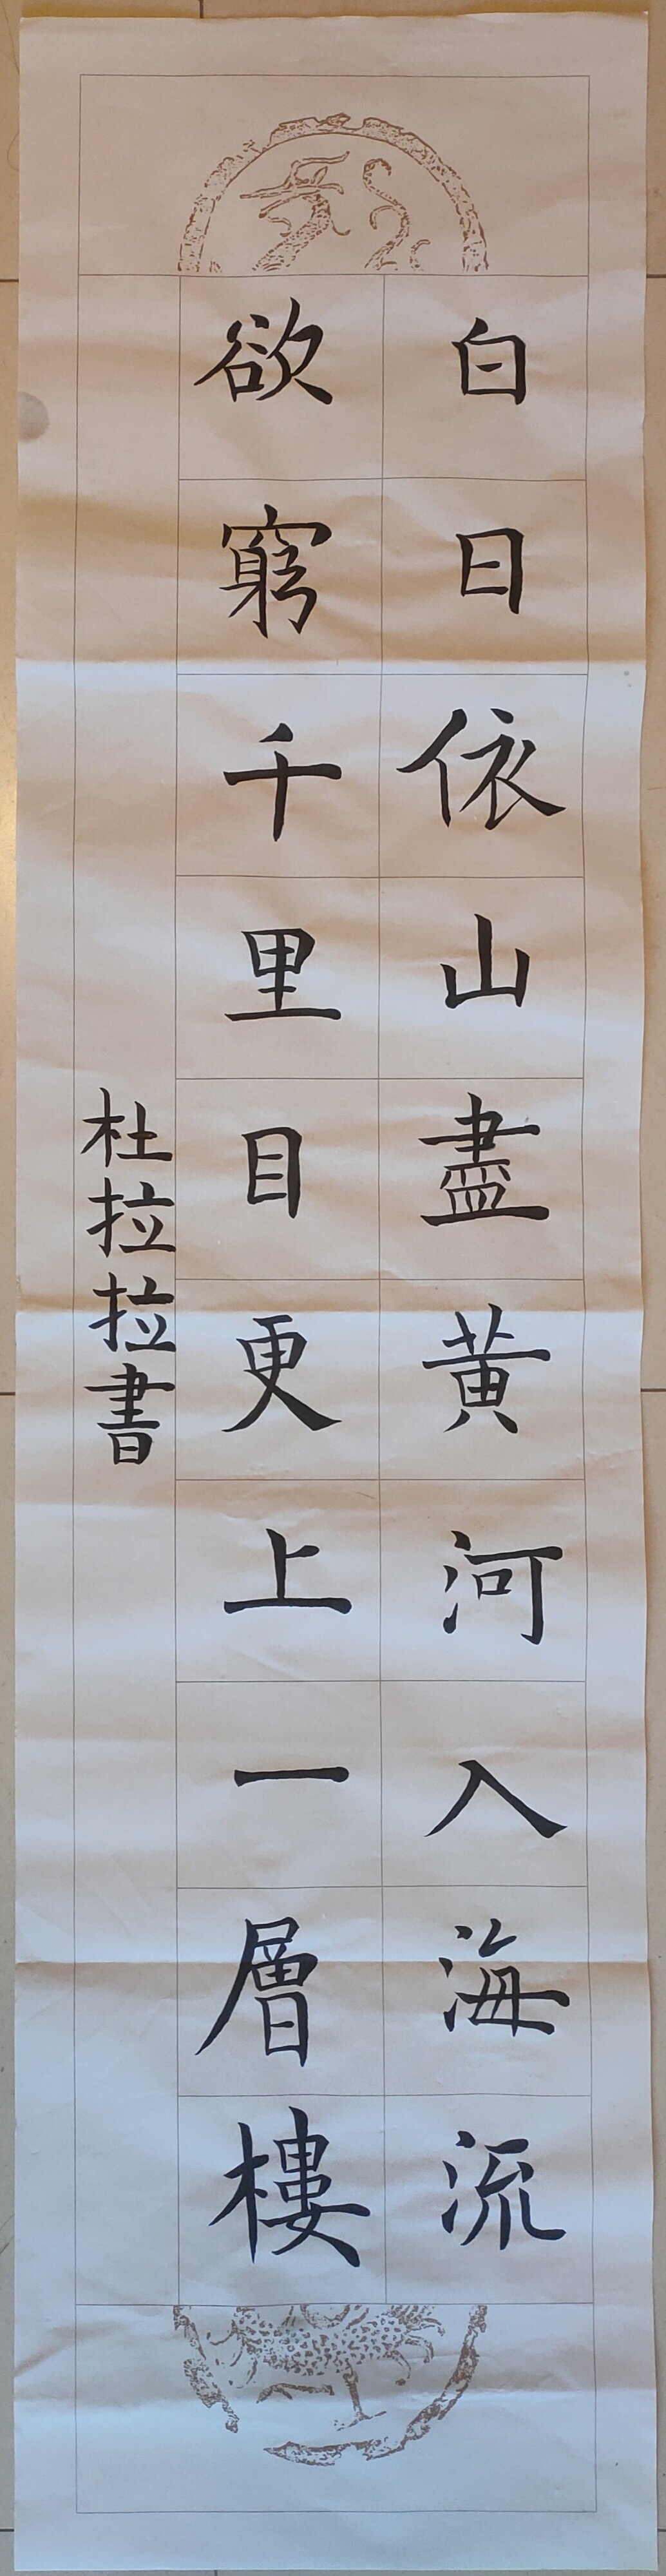 白日依山盡黄河入海流
欲窮千里目更上一層樓
杜拉拉書